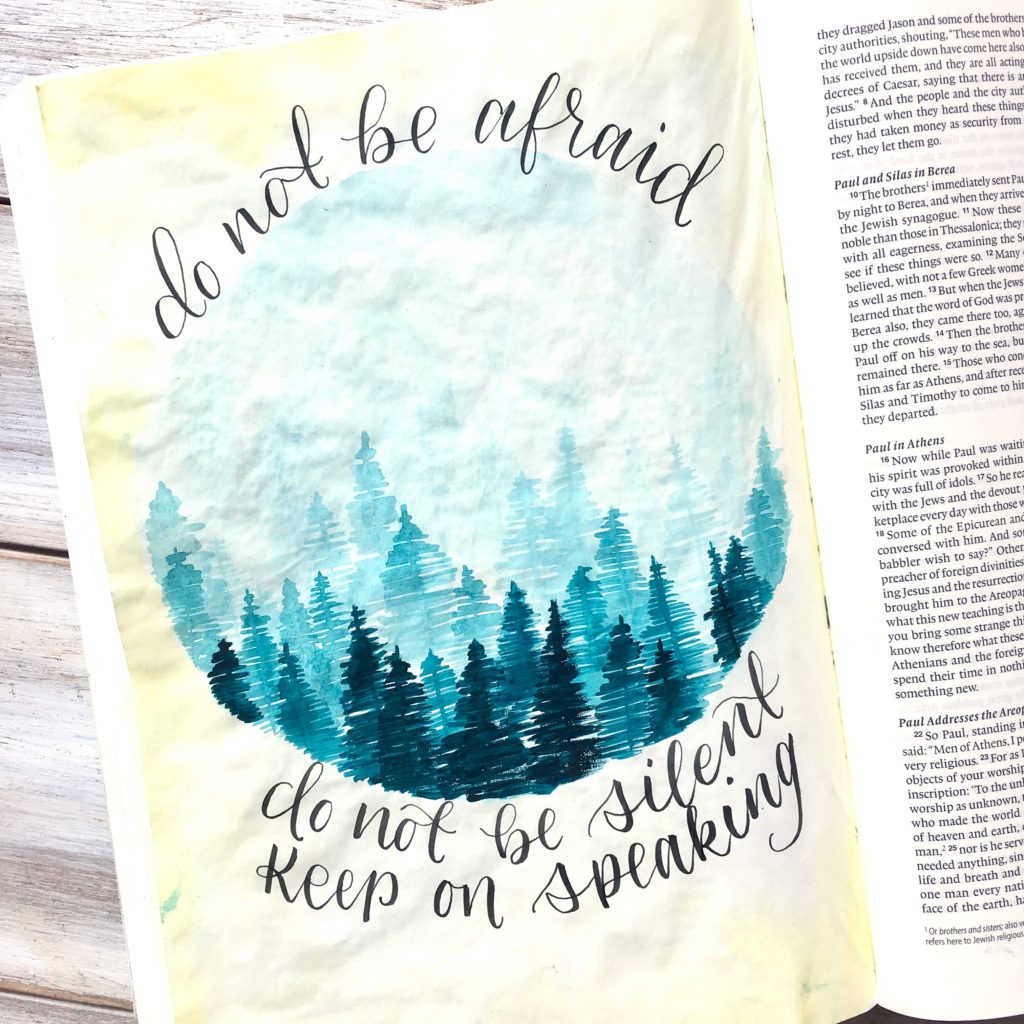 do not be afraid
do not be silent
keep on speaking
they dragged Jason and some of the brothers
city authorities, shouting, "These men who
the world upside down have come here also
has received them, and they are all acting
decrees of Caesar, saying that there is
Jesus." 8 And the people and the city
disturbed when they heard these things
they had taken money as security from
rest, they let them go.
Paul and Silas in Berea
10 The brothers1 immediately sent
by night to Berea, and when they
the Jewish synagogue. 11 Now these
noble than those in Thessalonica; they
with all eagerness, examining the
see if these things were so. 12 Many
believed, with not a few Greek
as well as men. 13 But when the Jews
learned that the word of God was
Berea also, they came there too,
up the crowds. 14 Then the
Paul off on his way to the sea,
remained there. 15 Those who
him as far as Athens, and after
Silas and Timothy to come to
they departed.
Paul in Athens
16 Now while Paul was
his spirit was provoked within
city was full of idols. 17 So he
with the Jews and the devout
ketplace every day with those
18 Some of the Epicurean and
conversed with him. And
babbler wish to say?" Other
preacher of foreign divinities
ing Jesus and the
brought him to the
what this new teaching is
you bring some strange
know therefore what these
Athenians and the
spend their time in
something new.
Paul Addresses the
22 So Paul, standing
said: "Men of Athens, I
very religious. 23 For as
objects of your worship
inscription: 'To the
worship as unknown,
who made the world
of heaven and earth,
man,2 25 nor is he
needed anything,
life and breath and
one man every
face of the earth,
1 Or brothers and sisters; also
refers here to Jewish religious